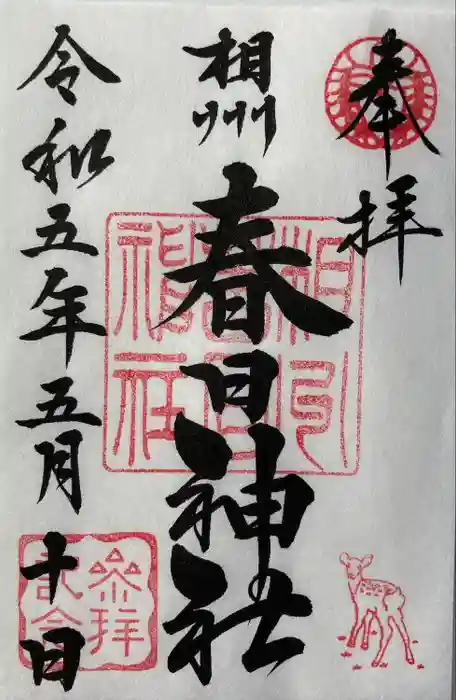 奉拝
相州
春日神社
令和五年五月十日
相州春日神社
参拝記念